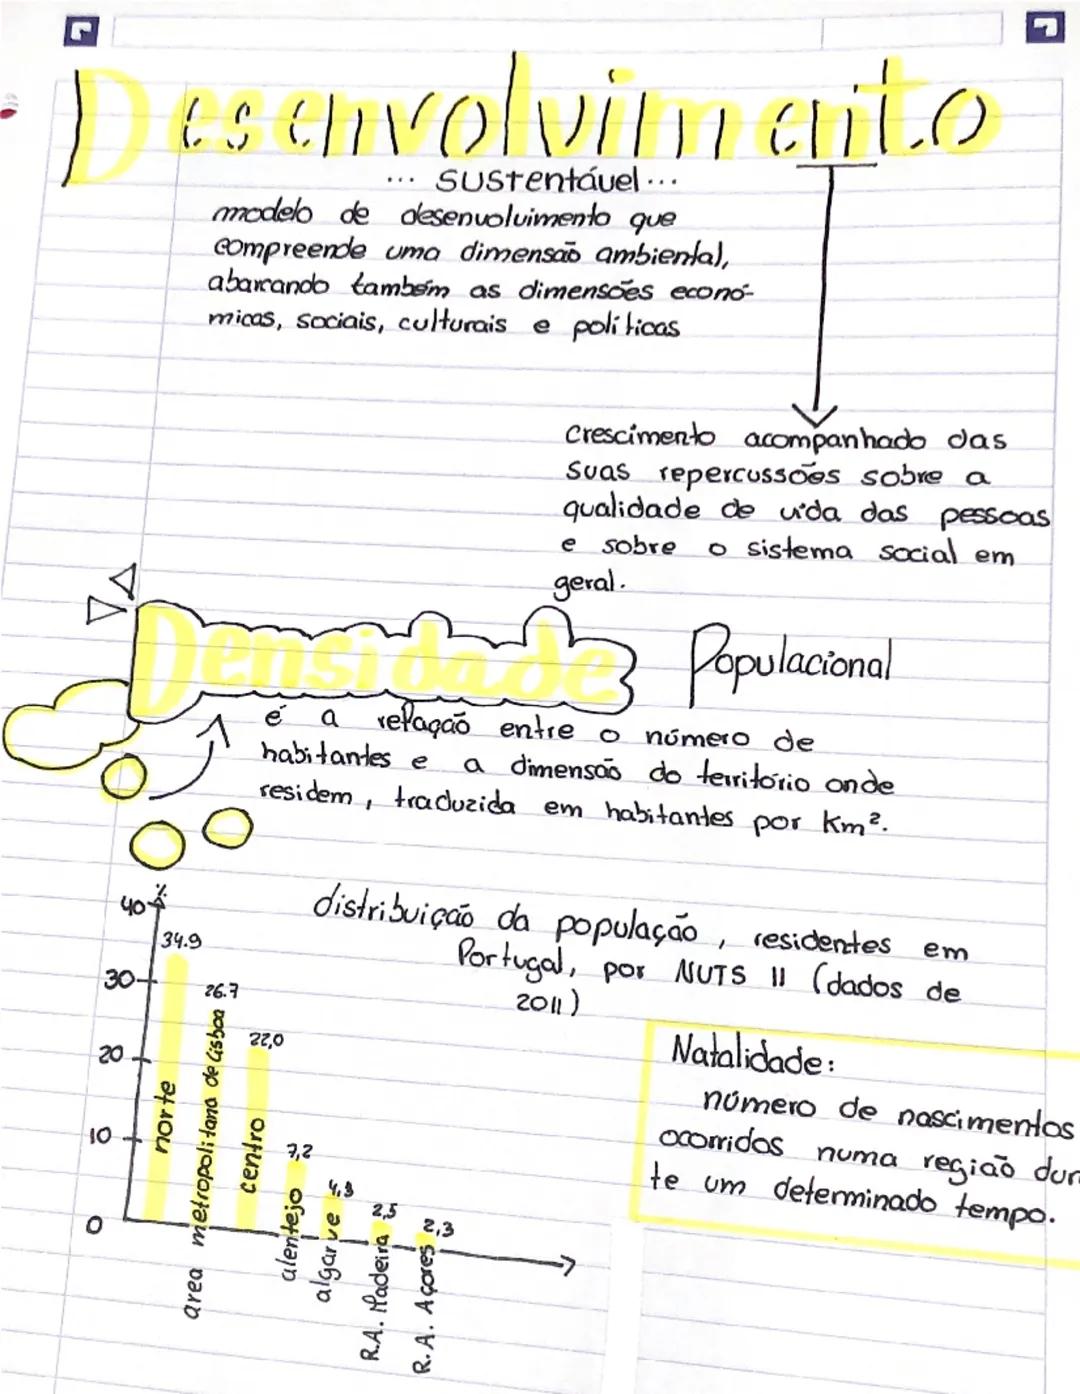 Desenvolvimento
... sustentável ...
modelo de desenvolvimento que
compreende uma dimensão ambiental,
abarcando também as dimensões econó-
micas, sociais, culturais e políticas
crescimento acompanhado das
suas repercussões sobre a
qualidade de vida das pessoas
e sobre o sistema social em
geral.
Densidade Populacional
é a relação entre o número de
habitantes e a dimensão do território onde
residem, traduzida em habitantes por Km².
distribuição da população, residentes em
Portugal, por NUTS II (dados de
2011)
%
40
30
20
10
0
34.9
norte
26.7
area metropolitana de Lisboa
22,0
centro
7,2
alentejo
4,3
algarve
2,5
R.A. Madeira
2,3
R.A. Açores
Natalidade:
número de nascimentos
ocorridos numa região dur
te um determinado tempo.